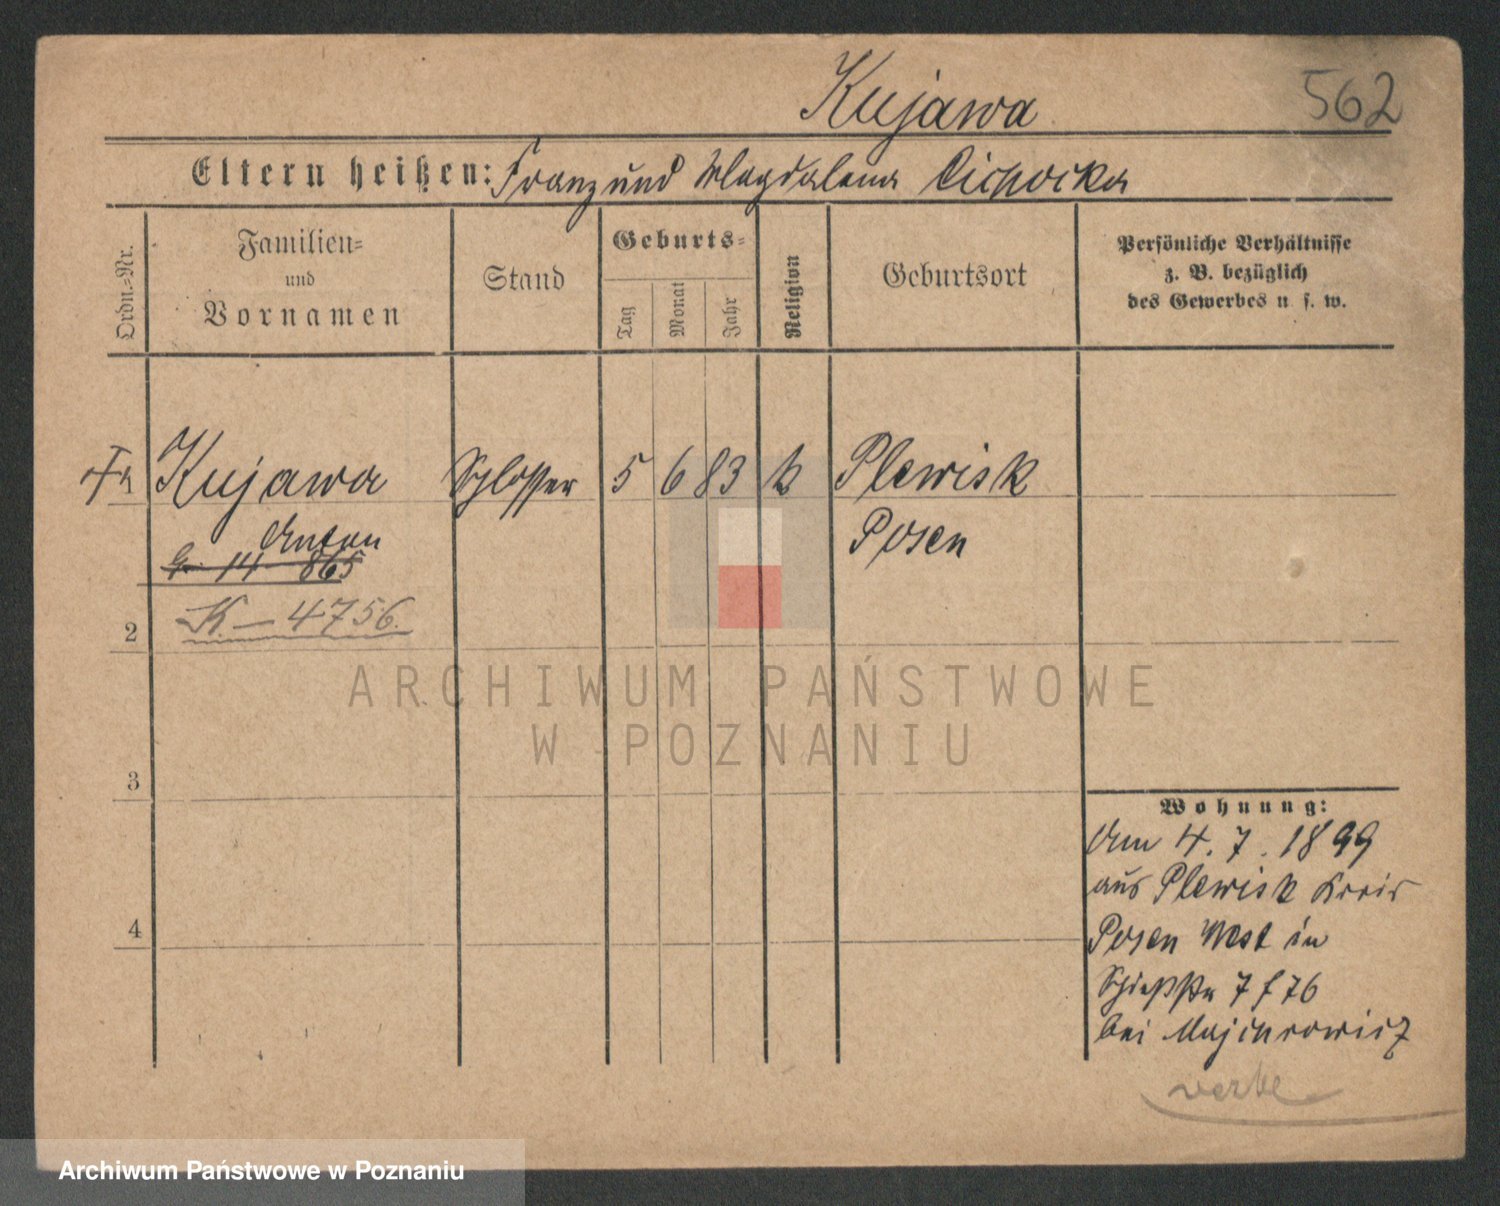 Kujawa 562
Eltern heißen: Franz und Magdalena Cichocka
Ordn.-Nr.
Familien=
und
Vornamen
Stand
Geburts=
Tag
Monat
Jahr
Religion
Geburtsort
Persönliche Verhältnisse
z. B. bezüglich
des Gewerbes u. s. w.
Kujawa Schlosser 5 6 83 k Plewisk
Anton Posen
14 865
K - 4756.
2
3
4
ARCHIWUM PAŃSTWOWE
W POZNANIU
Wohnung:
Am 4. 7. 1899
aus Plewisk Kreis
Posen West in
Schießstr 7 f 76
bei
Archiwum Państwowe w Poznaniu